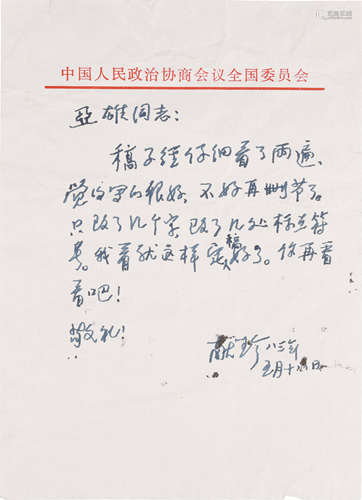 中国人民政治协商会议全国委员会
亚雄同志：
稿子经仔细看了两遍，
觉得写的很好，不好再删节了。
只改了几个字，改了几处标点符
号。我看就这样定稿好了。你再看
看吧！
敬礼！
献珍 八三年
五月十六日